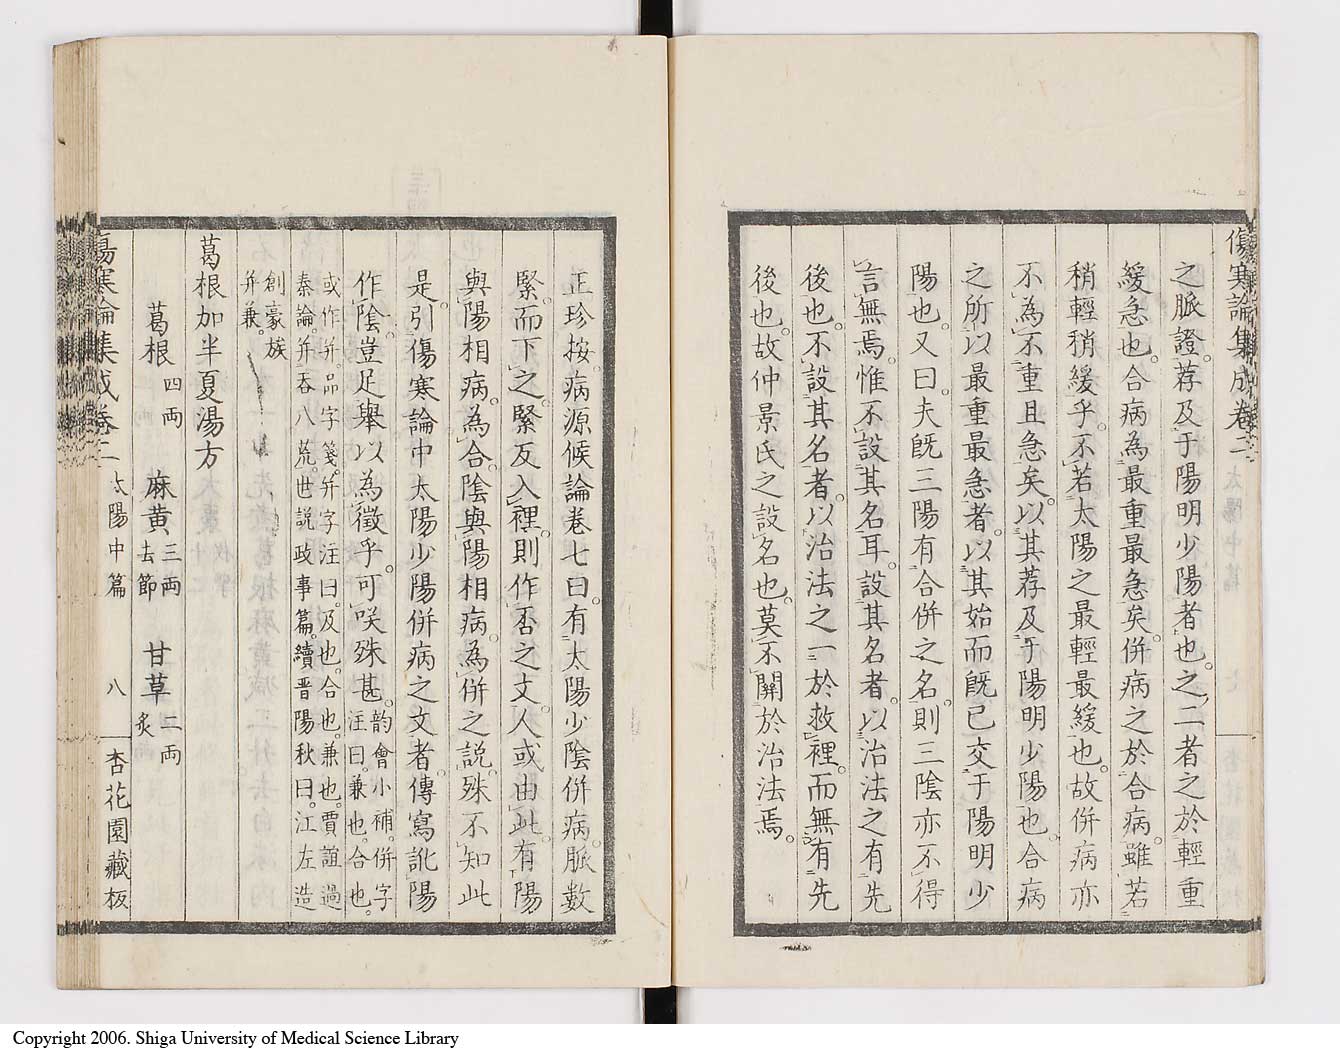 傷寒論集成卷二
之脈證。荐及于陽明少陽者也。之二者之於輕重
緩急也。合病為最重最急矣。併病之於合病。雖若
稍輕稍緩乎。不若太陽之最輕最緩也。故併病亦
不為不重且急矣。以其荐及于陽明少陽也。合病
之所以最重最急者。以其始而既已交于陽明少
陽也。又曰。夫既三陽有合併之名。則三陰亦不得
言無焉。惟不設其名耳。設其名者。以治法之有先
後也。不設其名者。以治法之一於救裡。而無有先
後也。故仲景氏之設名也。莫不關於治法焉。
正珍按。病源候論卷七曰。有太陽少陰併病。脈數
緊。而下之。緊反入裡。則作否之文。人或由此。有陽
與陽相病。為合。陰與陽相病。為併之說。殊不知此
是引傷寒論中太陽少陽併病之文者。傳寫訛陽
作陰。豈足舉以為徵乎。可咲殊甚。
韵會小補。併字
注曰。兼也。合也。
或作并。品字箋。并字注曰。及也。合也。兼也。賈誼過
秦論。并吞八荒。世說政事篇。續晋陽秋曰。江左造
創豪族
并兼。
葛根加半夏湯方
葛根 四兩 麻黃 三兩 去節 甘草 二兩 炙
傷寒論集成卷二 太陽中篇 八 杏花園藏板
Copyright 2006. Shiga University of Medical Science Library